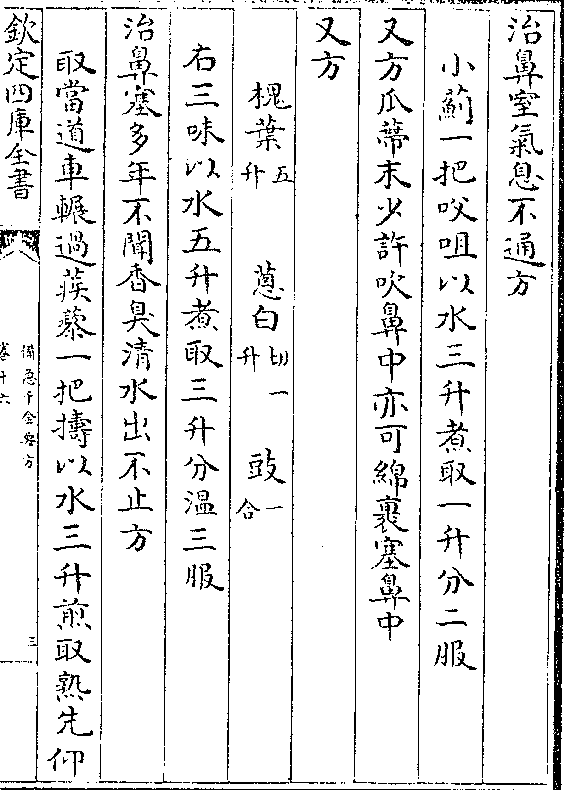 治鼻窒氣息不通方
小薊一把㕮咀以水三升煮取一升分二服
又方瓜蔕末少許吹鼻中亦可綿裹塞鼻中
又方
槐葉五升 蔥白切一升 豉一合
右三味以水五升煮取三升分溫三服
治鼻塞多年不聞香臭清水出不止方
取當道車輾過蒺藜一把擣以水三升煎取熟先仰
欽定四庫全書
備急千金要方
卷十六
三